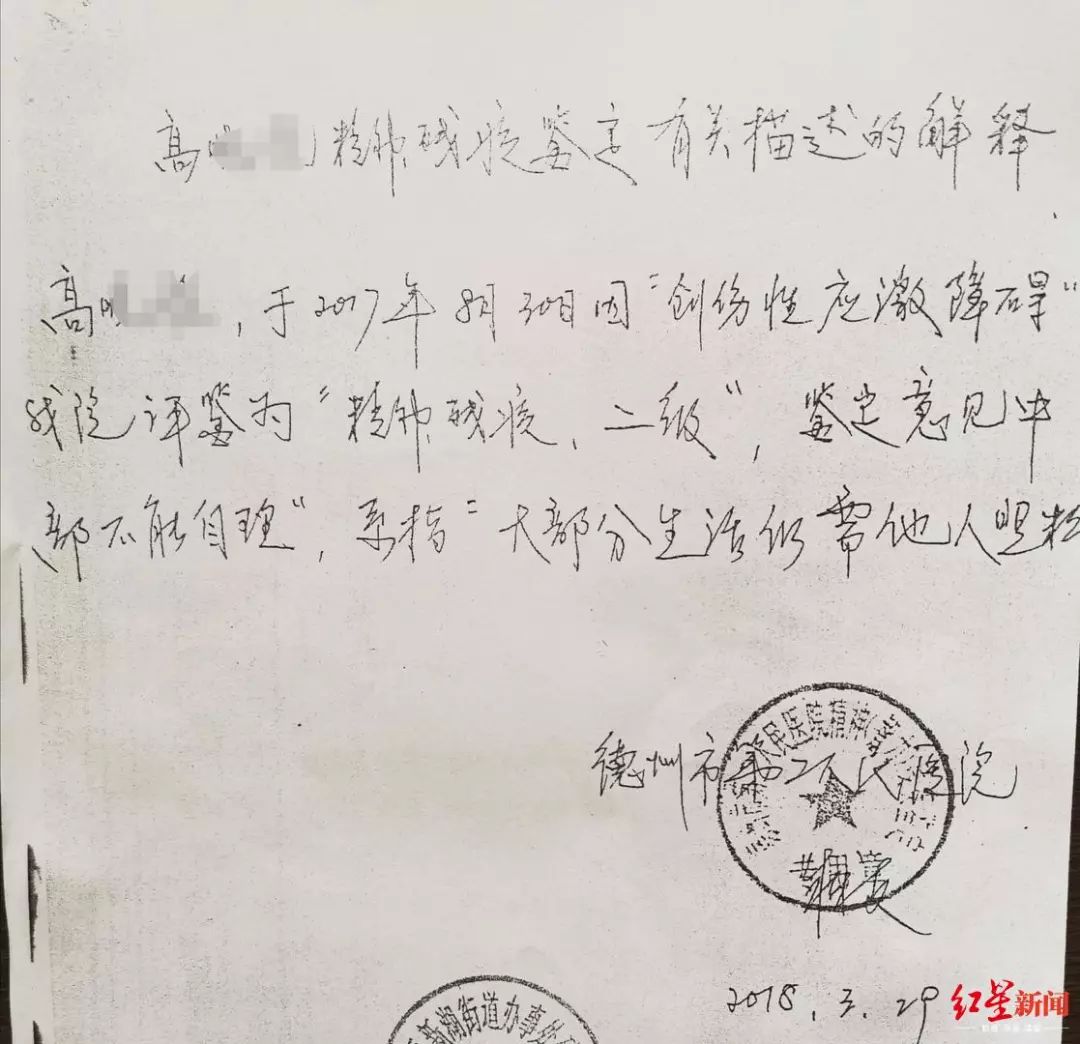 高 精神残疾鉴定有关描述的解释
高 ,于2017年8月30日因"创伤性应激障碍"
我院评鉴为"精神残疾,二级",鉴定意见中
部不能自理",系指"大部分生活仍需他人照料
德州市第二人民医院
民医院精神
2018.3.29
新湖街道办事处
红星新闻